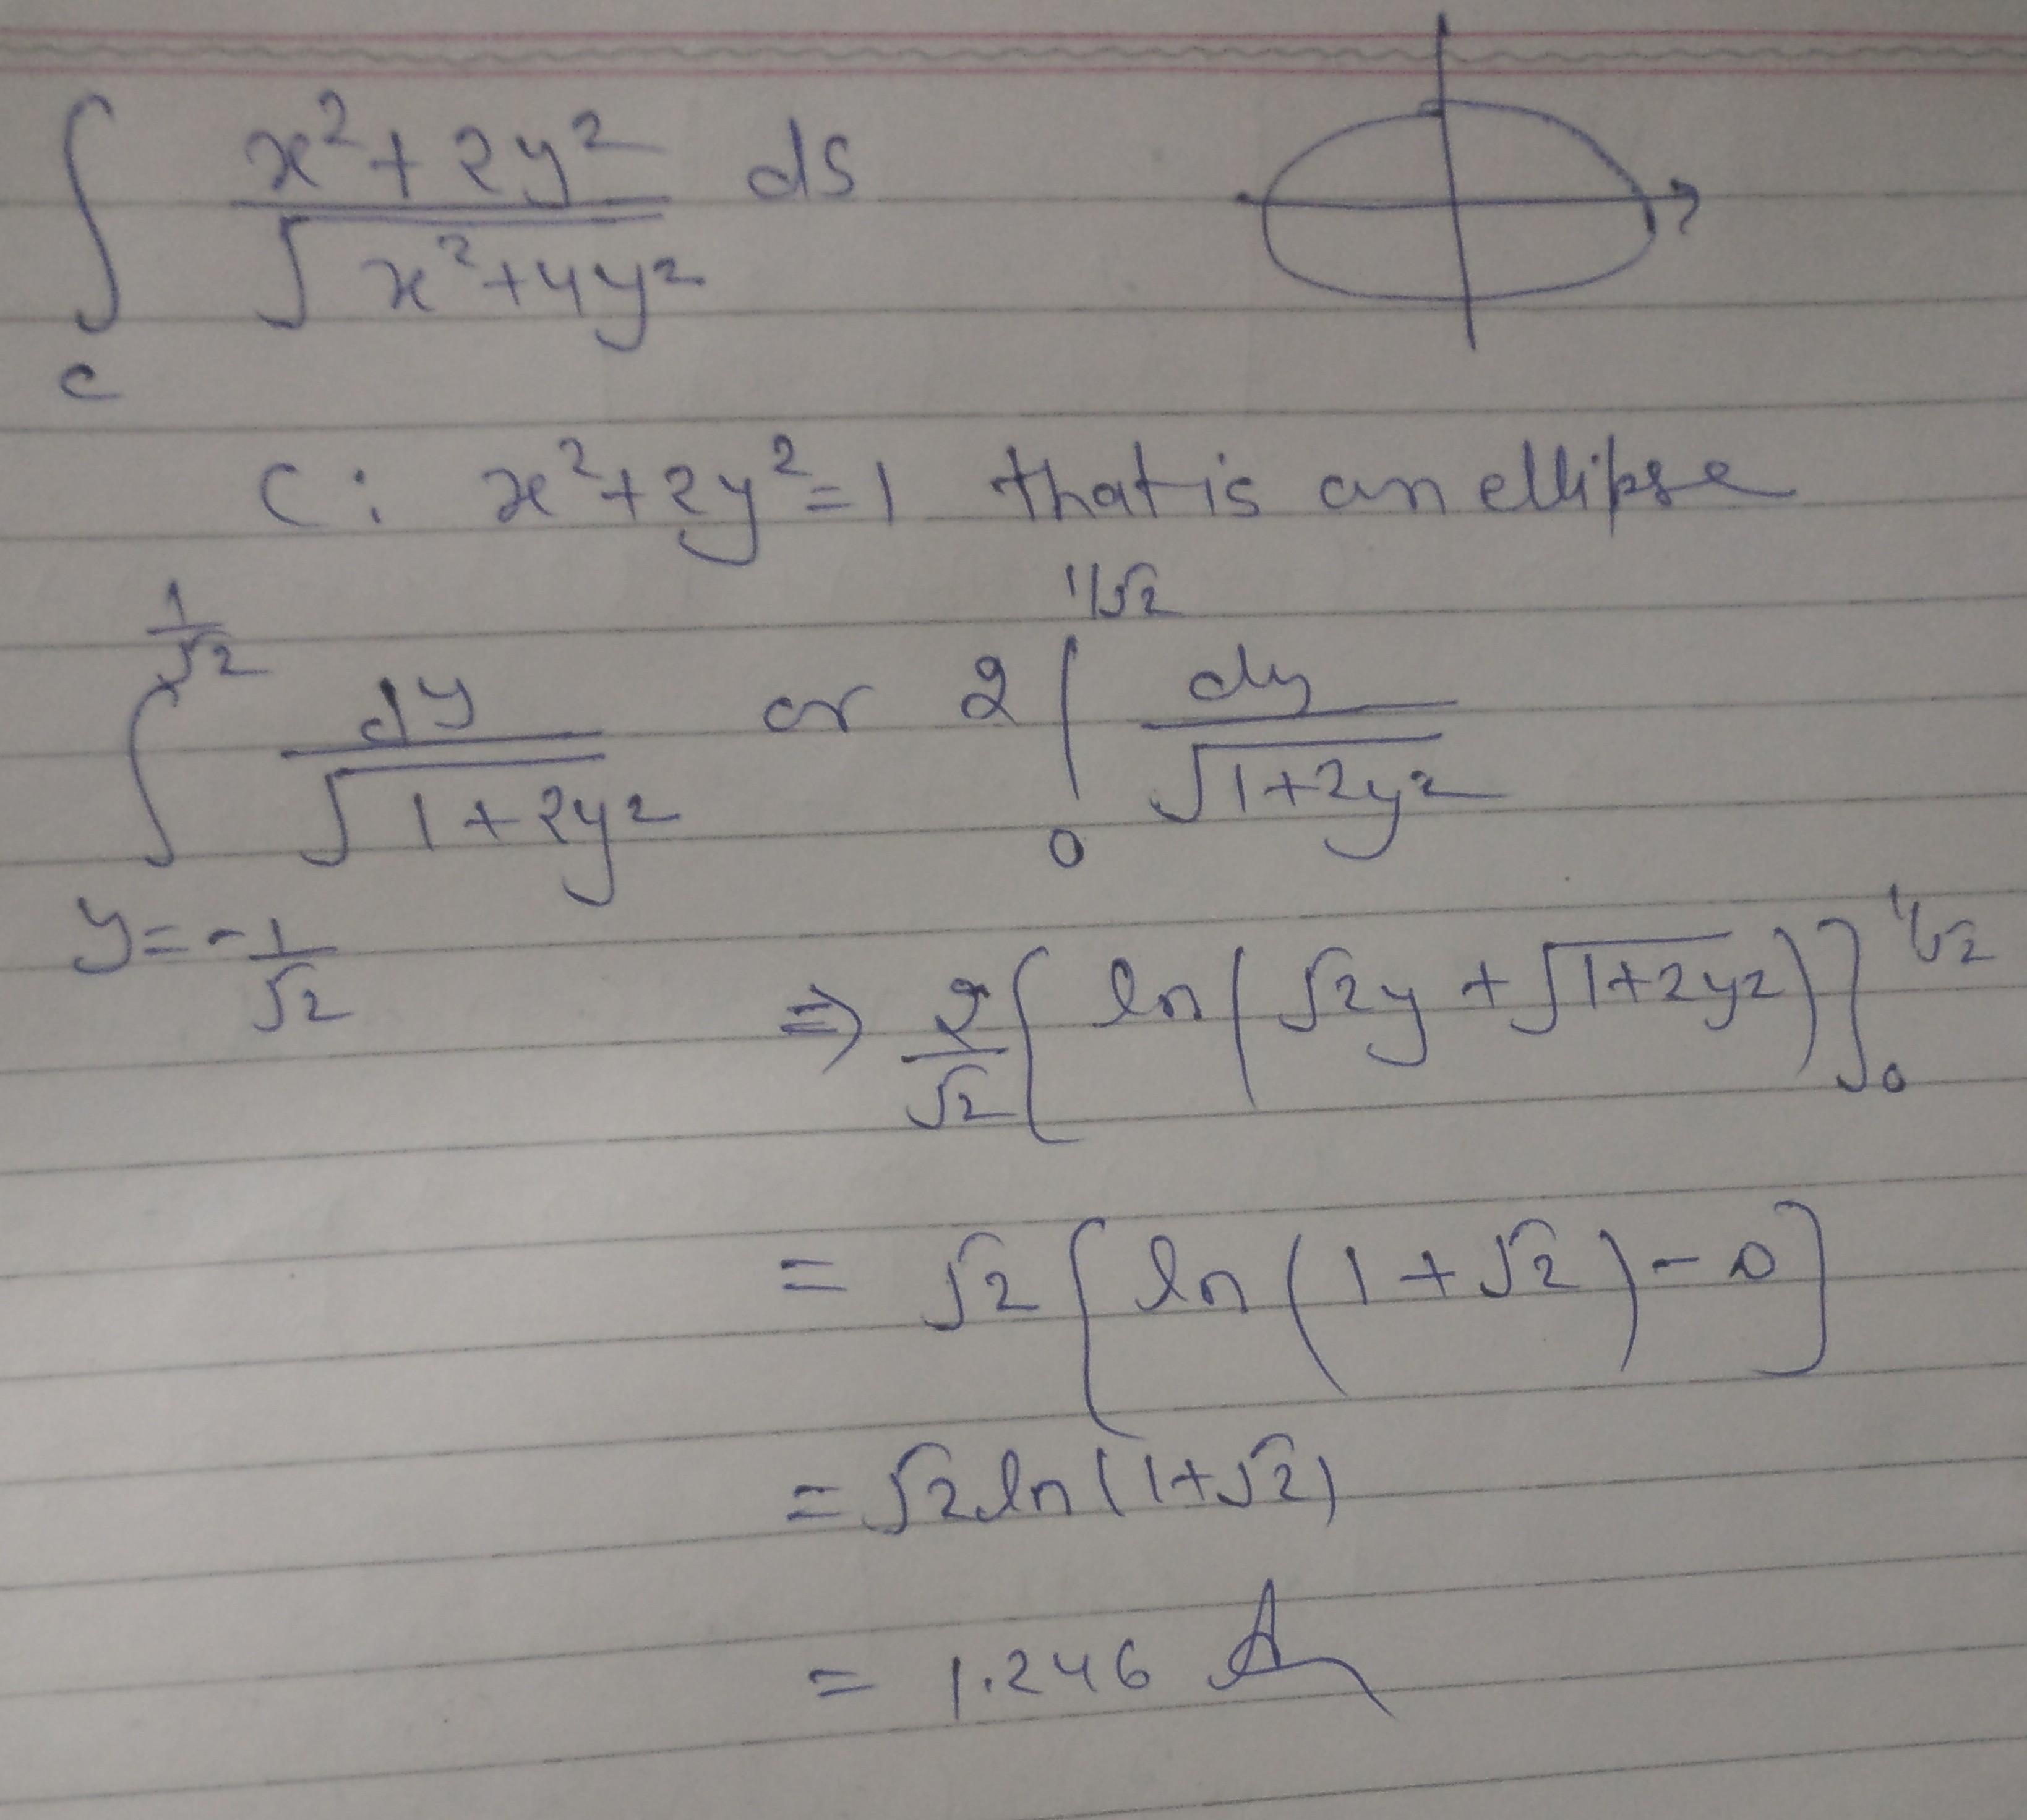 ∫_C (x²+2y²)/√(x²+4y²) ds
C: x²+2y²=1 that is an ellipse
∫_{y=-1/√2}^{1/√2} dy/√(1+2y²) or 2∫_0^{1/√2} dy/√(1+2y²)
⇒ 2/√2 [ln(√2y+√(1+2y²))]_0^{1/√2}
= √2 [ln(1+√2)-0]
= √2 ln(1+√2)
= 1.246 A